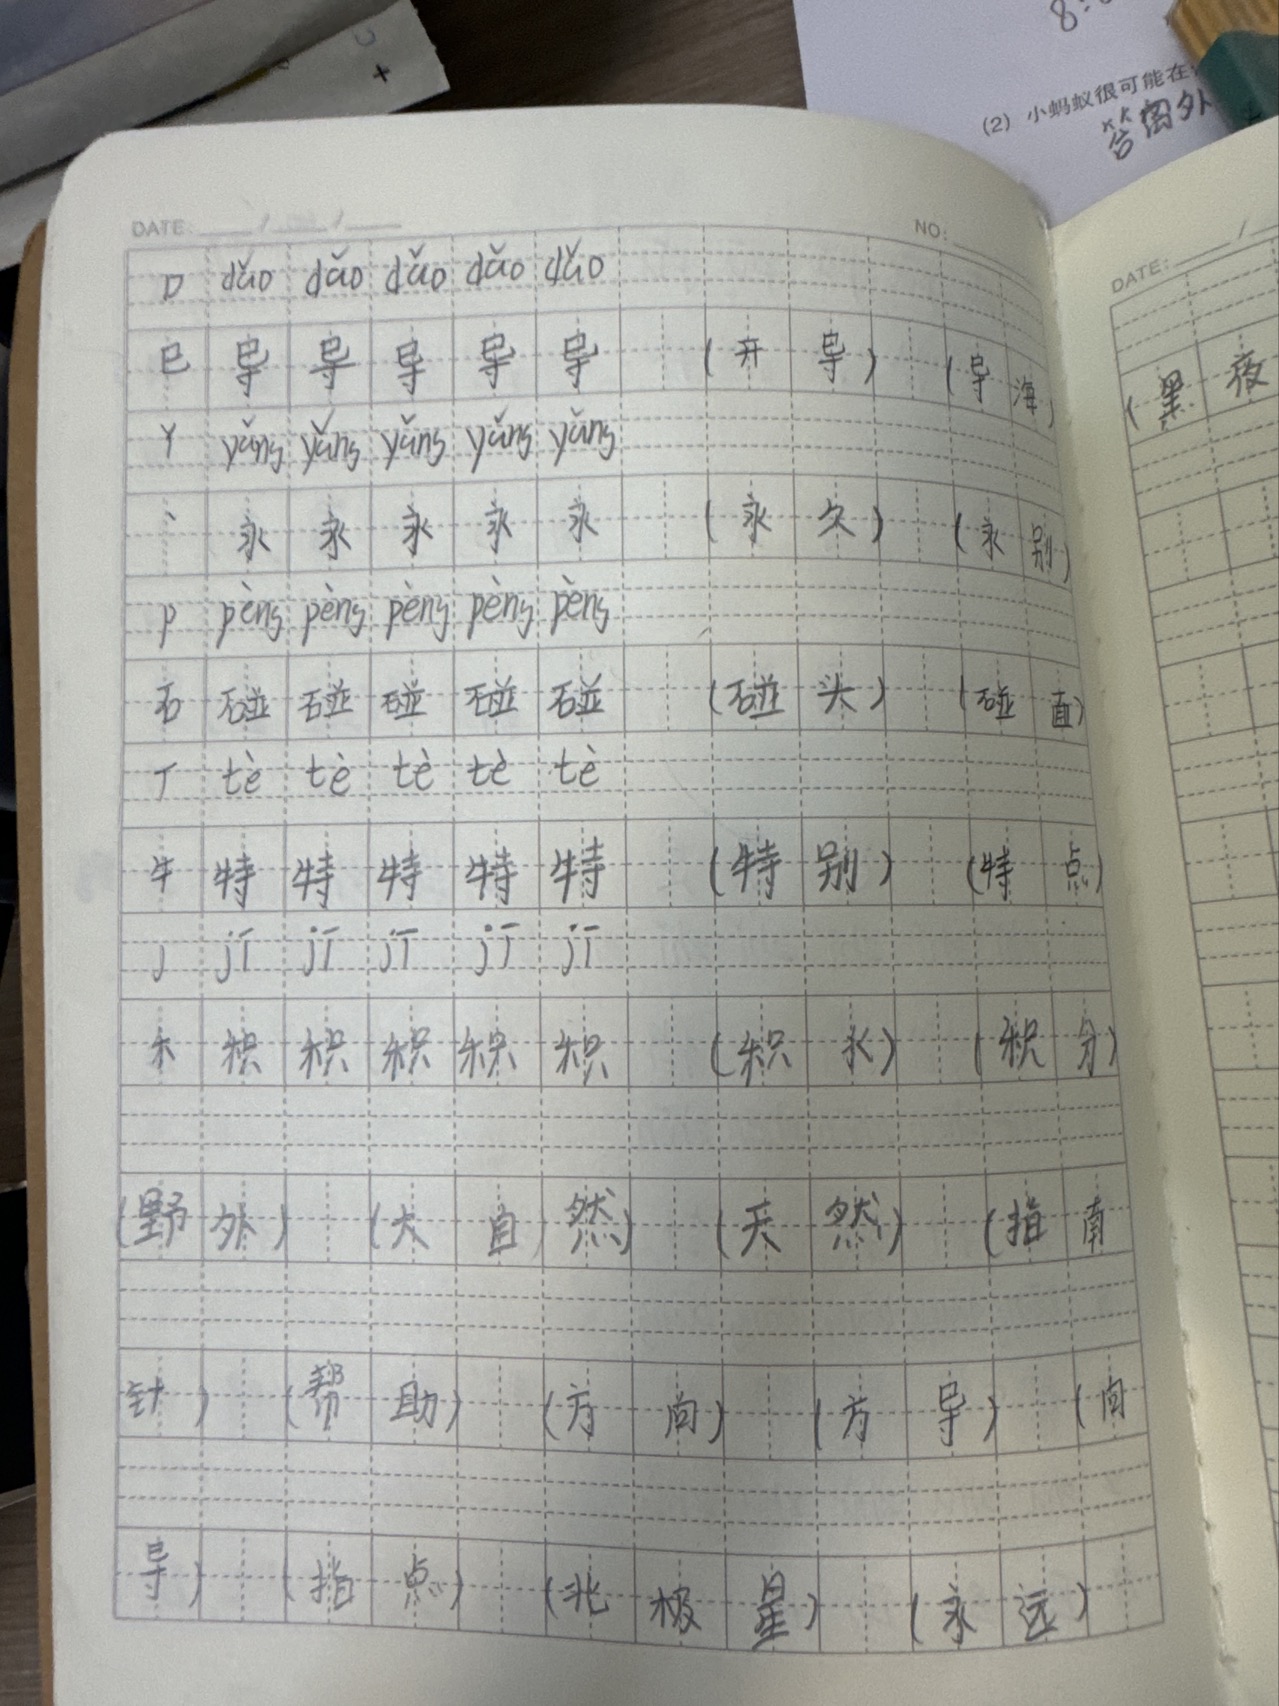 8:
(2) 小蚂蚁很可能在
答
窗外
DATE: / /
NO:
D dǎo dǎo dǎo dǎo dǎo
巳 导 导 导 导 导 (开 导) (导 海)
Y yǎng yǎng yǎng yǎng yǎng
丶 永 永 永 永 永 (永 久) (永 别)
P pèng pèng pèng pèng pèng
石 碰 碰 碰 碰 碰 (碰 头) (碰 面)
T tè tè tè tè tè
牛 特 特 特 特 特 (特 别) (特 点)
J jī jī jī jī jī
禾 积 积 积 积 积 (积 水) (积 分)
(野 外) (大 自 然) (天 然) (指 南
针) (帮 助) (方 向) (方 导) (向
导) (指 点) (北 极 星) (永 远)
DATE: /
(黑 夜